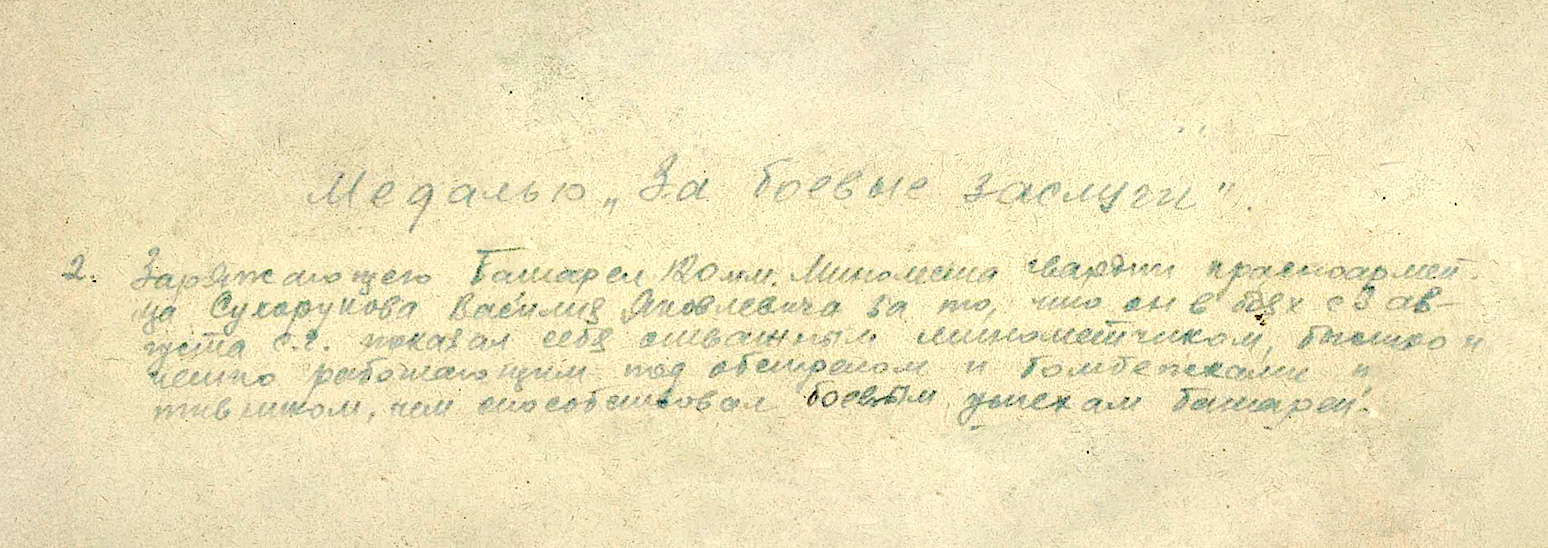 Медалью „За боевые заслуги".
2. Заряжающего батареи 120 мм. минометов гвардии красноармей-
ца Сухорукова Василия Яковлевича за то, что он в боях с 3 ав-
густа с.г. показал себя отважным минометчиком, быстро и
четко работающим под обстрелом и бомбежками
чем способствовал боевым успехам батареи.